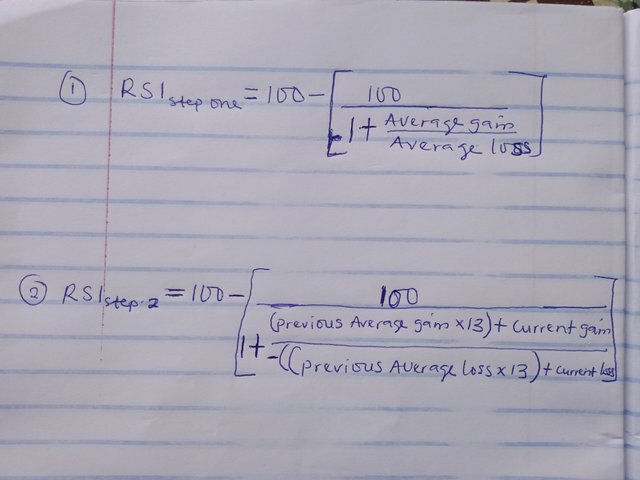 ① RSI step one = 100 - [ 100
1 + Average gain
Average loss ]
② RSI step 2 = 100 - [ 100
(previous Average gain × 13) + current gain
1 + -((previous Average loss × 13) + current loss ]